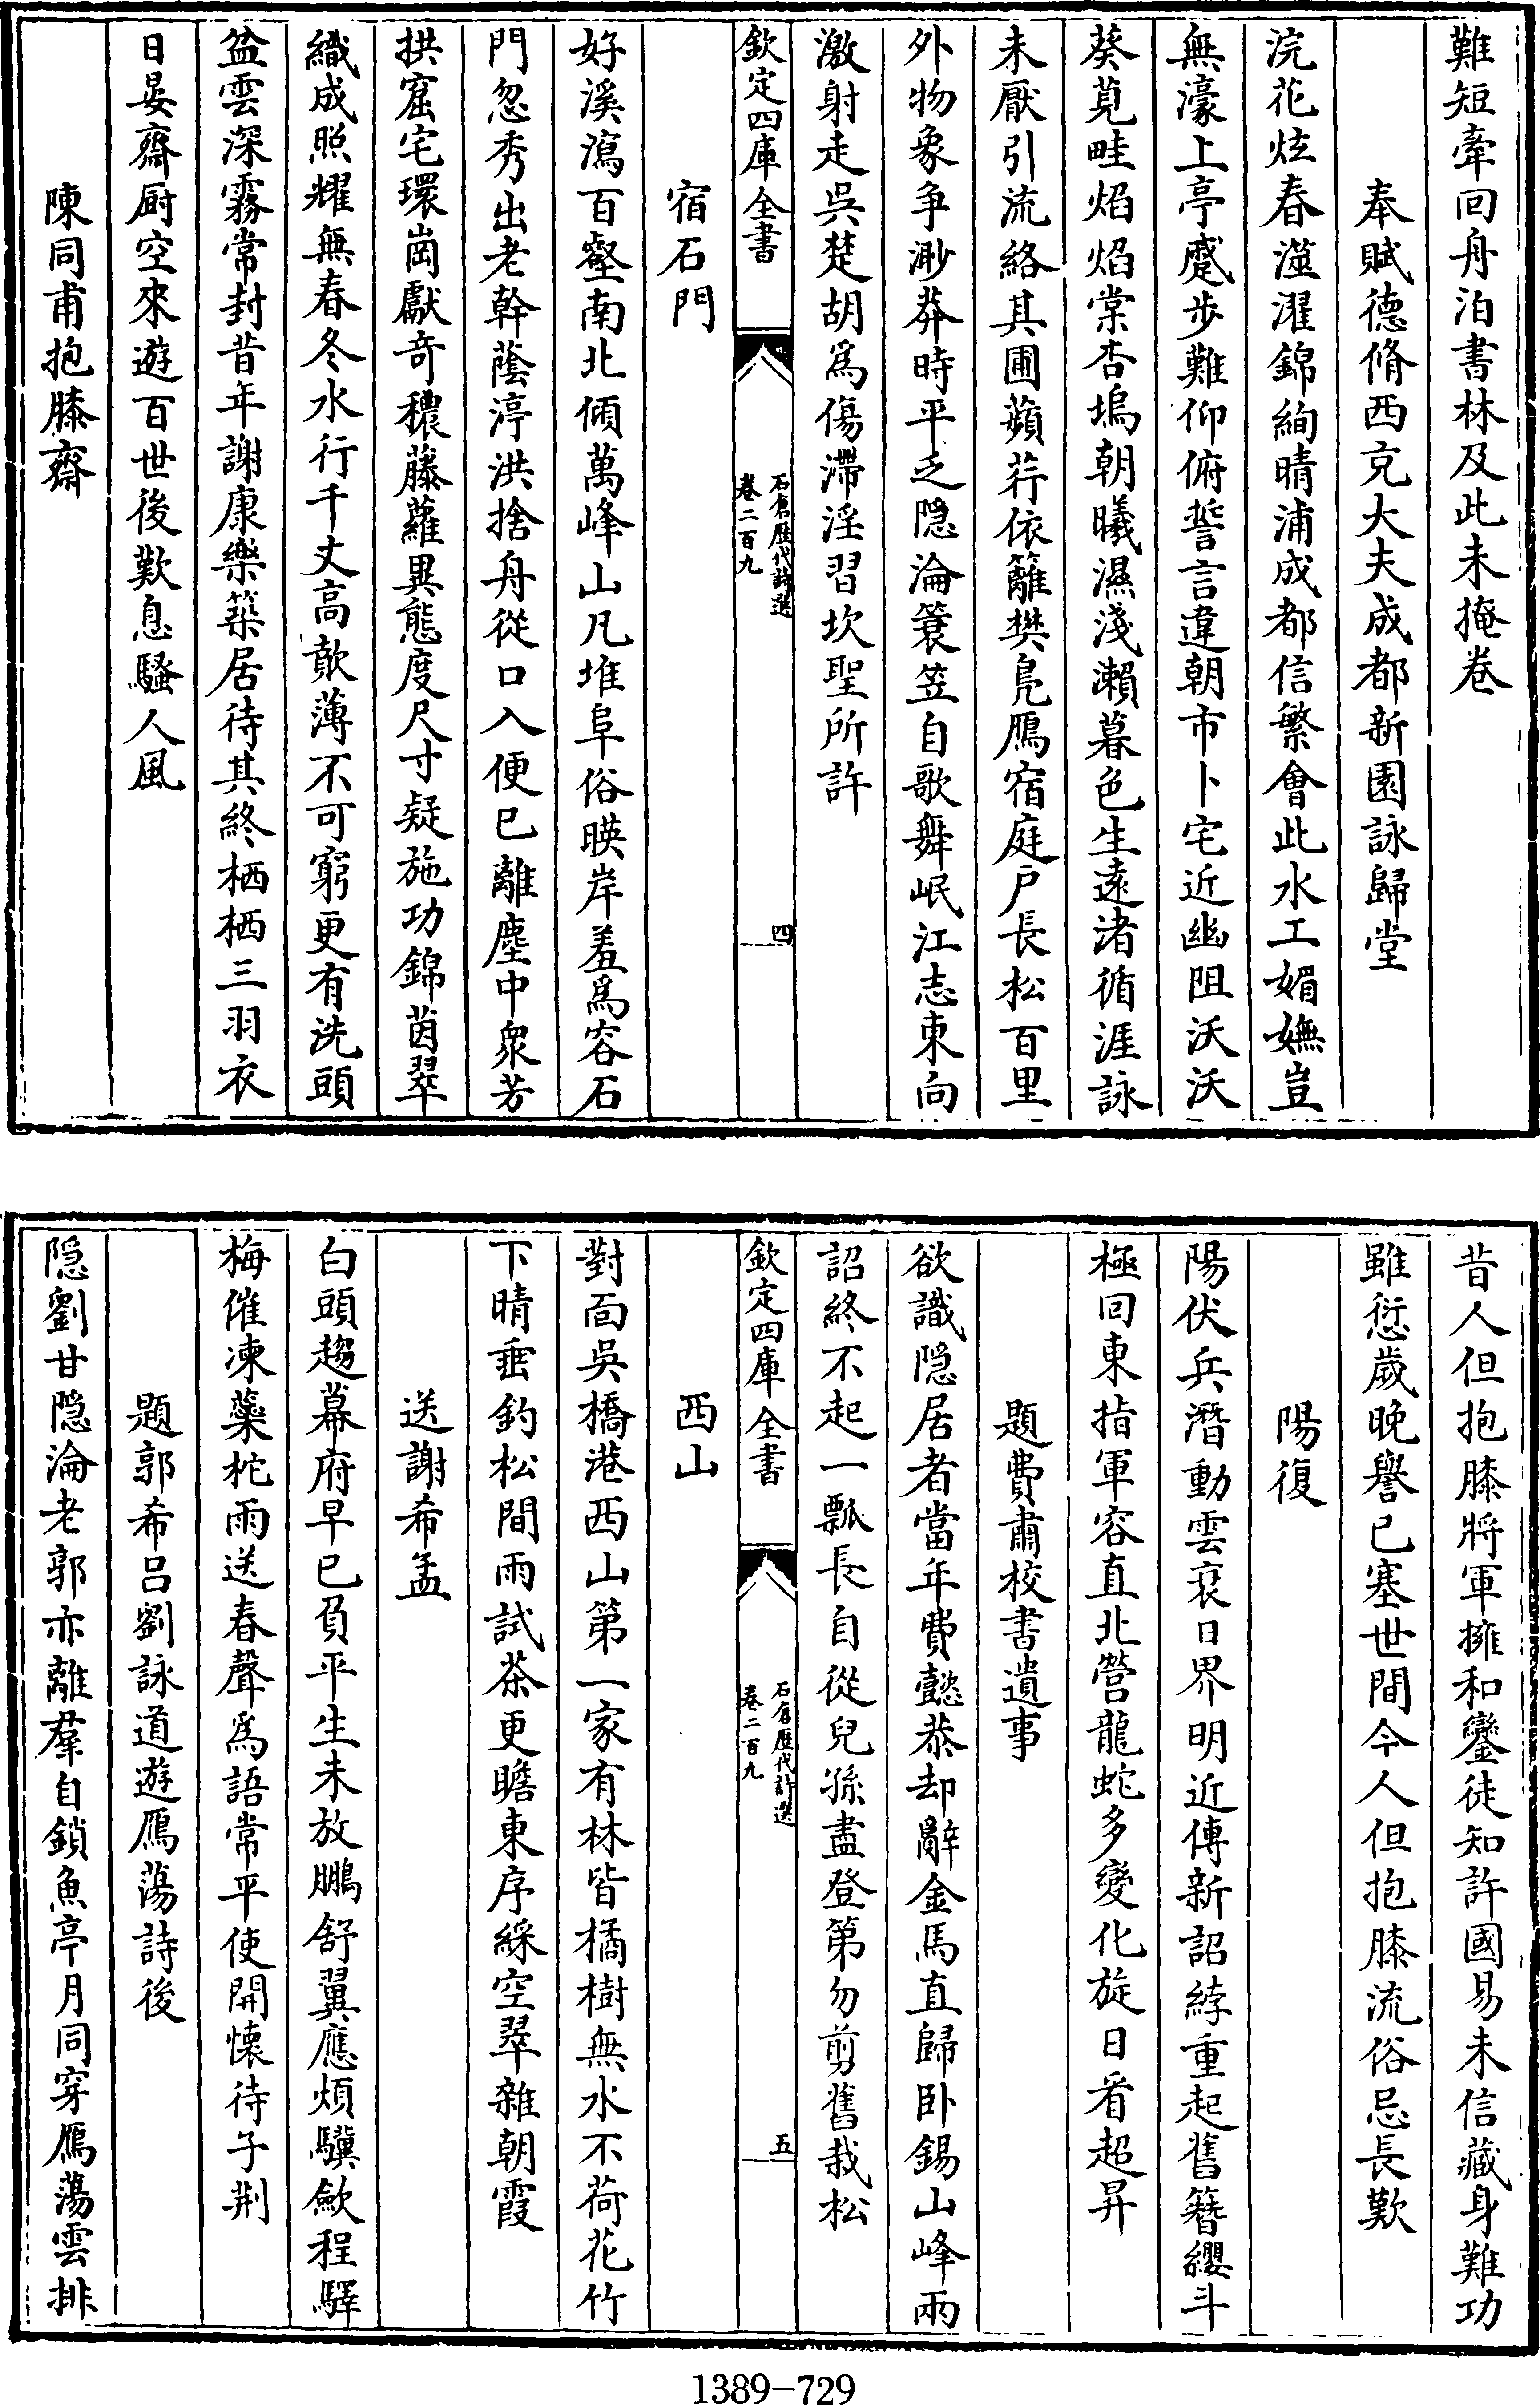 難短牽回舟泊書林及此未掩卷
奉賦德脩西充大夫成都新園詠歸堂
浣花炫春滋濯錦絢晴浦成都信繁會此水工媚嫵豈
無濠上亭蹙步難仰俯誓言違朝市卜宅近幽阻沃沃
葵莧畦焰焰棠杏塢朝曦濕淺瀨暮色生遠渚循涯詠
未厭引流絡其圃蘋荇依籬樊鳧鴈宿庭戶長松百里
外物象爭渺莽時平乏隠淪簑笠自歌舞岷江志東向
激射走吳楚胡為傷滯淫習坎聖所許
欽定四庫全書
石倉歷代詩選
卷二百九
四
宿石門
好溪瀉百壑南北傾萬峰山凡堆阜俗暎岸羞為容石
門忽秀出老幹蔭渟洪捨舟從口入便已離塵中衆芳
拱窟宅環崗獻奇穠藤蘿異態度尺寸疑施功錦茵翠
織成照耀無春冬水行千丈高歕薄不可窮更有洗頭
盆雲深霧常封昔年謝康樂築居待其終栖栖三羽衣
日晏齋厨空來遊百世後歎息騷人風
陳同甫抱膝齋
昔人但抱膝將軍擁和鑾徒知許國易未信藏身難功
雖愆歲晚譽已塞世間今人但抱膝流俗忌長歎
陽復
陽伏兵潛動雲衰日界明近傳新詔綍重起舊簪纓斗
極回東指軍容直北營龍蛇多變化旋日看超昇
題費肅校書遺事
欲識隠居者當年費懿恭却辭金馬直歸卧錫山峰兩
詔終不起一瓢長自從兒孫盡登第勿剪舊栽松
欽定四庫全書
石倉歷代詩選
卷二百九
五
西山
對面吳橋港西山第一家有林皆橘樹無水不荷花竹
下晴垂釣松間雨試茶更瞻東序綵空翠雜朝霞
送謝希孟
白頭趨幕府早已負平生未放鵬舒翼應煩驥歛程驛
梅催凍蘂柁雨送春聲為語常平使開懐待子荆
題郭希呂劉詠道遊鴈蕩詩後
隠劉甘隠淪老郭亦離羣自鎖魚亭月同穿鴈蕩雲排
1389—729